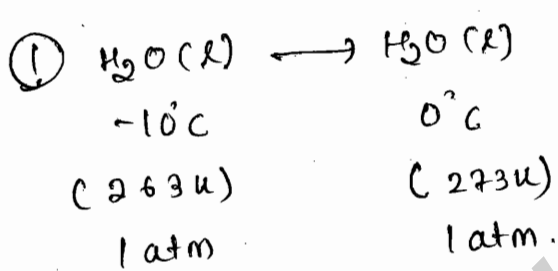 ① H₂O(l) ⟶ H₂O(l)
-10°C 0°C
(263K) (273K)
1 atm 1 atm.